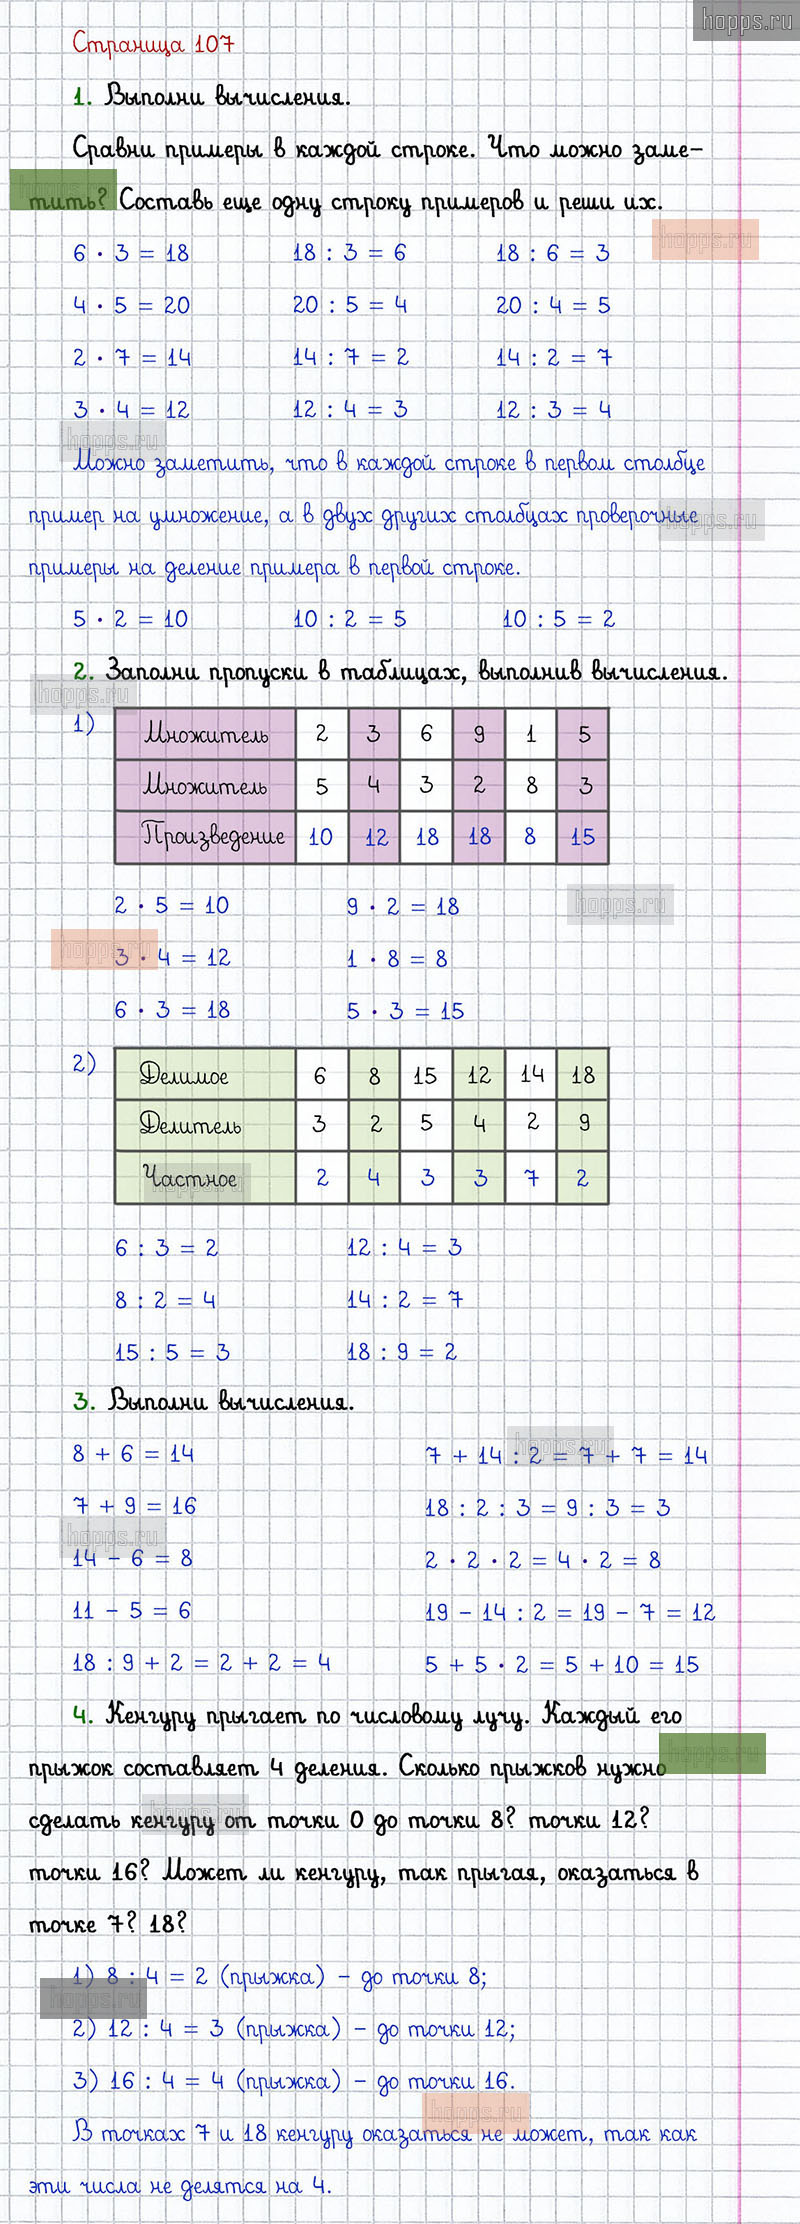 hopps.ru
Страница 107
1. Выполни вычисления.
Сравни примеры в каждой строке. Что можно заме-
hopps.ru
тить? Составь еще одну строку примеров и реши их.
hopps.ru
6 · 3 = 18 18 : 3 = 6 18 : 6 = 3
4 · 5 = 20 20 : 5 = 4 20 : 4 = 5
2 · 7 = 14 14 : 7 = 2 14 : 2 = 7
3 · 4 = 12 12 : 4 = 3 12 : 3 = 4
hopps.ru
Можно заметить, что в каждой строке в первом столбце
пример на умножение, а в двух других столбцах проверочные
hopps.ru
примеры на деление примера в первой строке.
5 · 2 = 10 10 : 2 = 5 10 : 5 = 2
2. Заполни пропуски в таблицах, выполнив вычисления.
hopps.ru
1) Множитель 2 3 6 9 1 5
Множитель 5 4 3 2 8 3
Произведение 10 12 18 18 8 15
2 · 5 = 10 9 · 2 = 18
hopps.ru
hopps.ru
3 · 4 = 12 1 · 8 = 8
6 · 3 = 18 5 · 3 = 15
2) Делимое 6 8 15 12 14 18
Делитель 3 2 5 4 2 9
Частное 2 4 3 3 7 2
hopps.ru
6 : 3 = 2 12 : 4 = 3
8 : 2 = 4 14 : 2 = 7
15 : 5 = 3 18 : 9 = 2
3. Выполни вычисления.
hopps.ru
8 + 6 = 14 7 + 14 : 2 = 7 + 7 = 14
7 + 9 = 16 18 : 2 : 3 = 9 : 3 = 3
hopps.ru
14 - 6 = 8 2 · 2 · 2 = 4 · 2 = 8
11 - 5 = 6 19 - 14 : 2 = 19 - 7 = 12
18 : 9 + 2 = 2 + 2 = 4 5 + 5 · 2 = 5 + 10 = 15
4. Кенгуру прыгает по числовому лучу. Каждый его
hopps.ru
прыжок составляет 4 деления. Сколько прыжков нужно
hopps.ru
сделать кенгуру от точки 0 до точки 8? точки 12?
точки 16? Может ли кенгуру, так прыгая, оказаться в
точке 7? 18?
1) 8 : 4 = 2 (прыжка) - до точки 8;
hopps.ru
2) 12 : 4 = 3 (прыжка) - до точки 12;
3) 16 : 4 = 4 (прыжка) - до точки 16.
hopps.ru
В точках 7 и 18 кенгуру оказаться не может, так как
эти числа не делятся на 4.